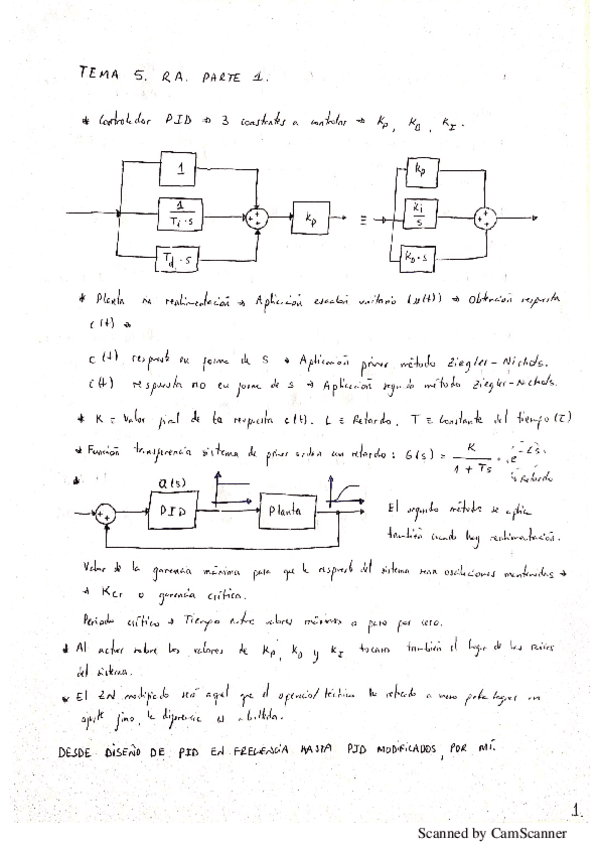 TEMA 5. R.A. PARTE 1.
* Controlador PID → 3 constantes a controlar → Kp, KD, KI.
1
1
Ti·s
Td·s
Kp
≡
Kp
Ki
s
KD·s
* Planta sin realimentación → Aplicación escalón unitario (u(t)) → Obtención respuesta
c(t) →
c(t) respuesta en forma de S → Aplicación primer método Ziegler-Nichols.
c(t) respuesta no en forma de S → Aplicación segundo método Ziegler-Nichols.
* K ≡ Valor final de la respuesta c(t). L ≡ Retardo. T ≡ Constante del tiempo (τ)
* Función transferencia sistema de primer orden con retardo: G(s) = K / 1 + Ts · e^-Ls
Retardo
*
a(s)
PID
Planta
El segundo método se aplica
también cuando hay realimentación.
Valor de la ganancia máxima para que la respuesta del sistema sean oscilaciones mantenidas →
→ Kcr o ganancia crítica.
Periodo crítico → Tiempo entre valores máximos o paso por cero.
* Al actuar sobre los valores de Kp, KD y KI tocamos también el lugar de las raíces
del sistema.
* El ZN modificado será aquel que el operario/técnico ha retocado a mano para lograr un
ajuste fino, la diferencia es
DESDE DISEÑO DE PID EN FRECUENCIA HASTA PID MODIFICADOS, POR MÍ.
1.
Scanned by CamScanner